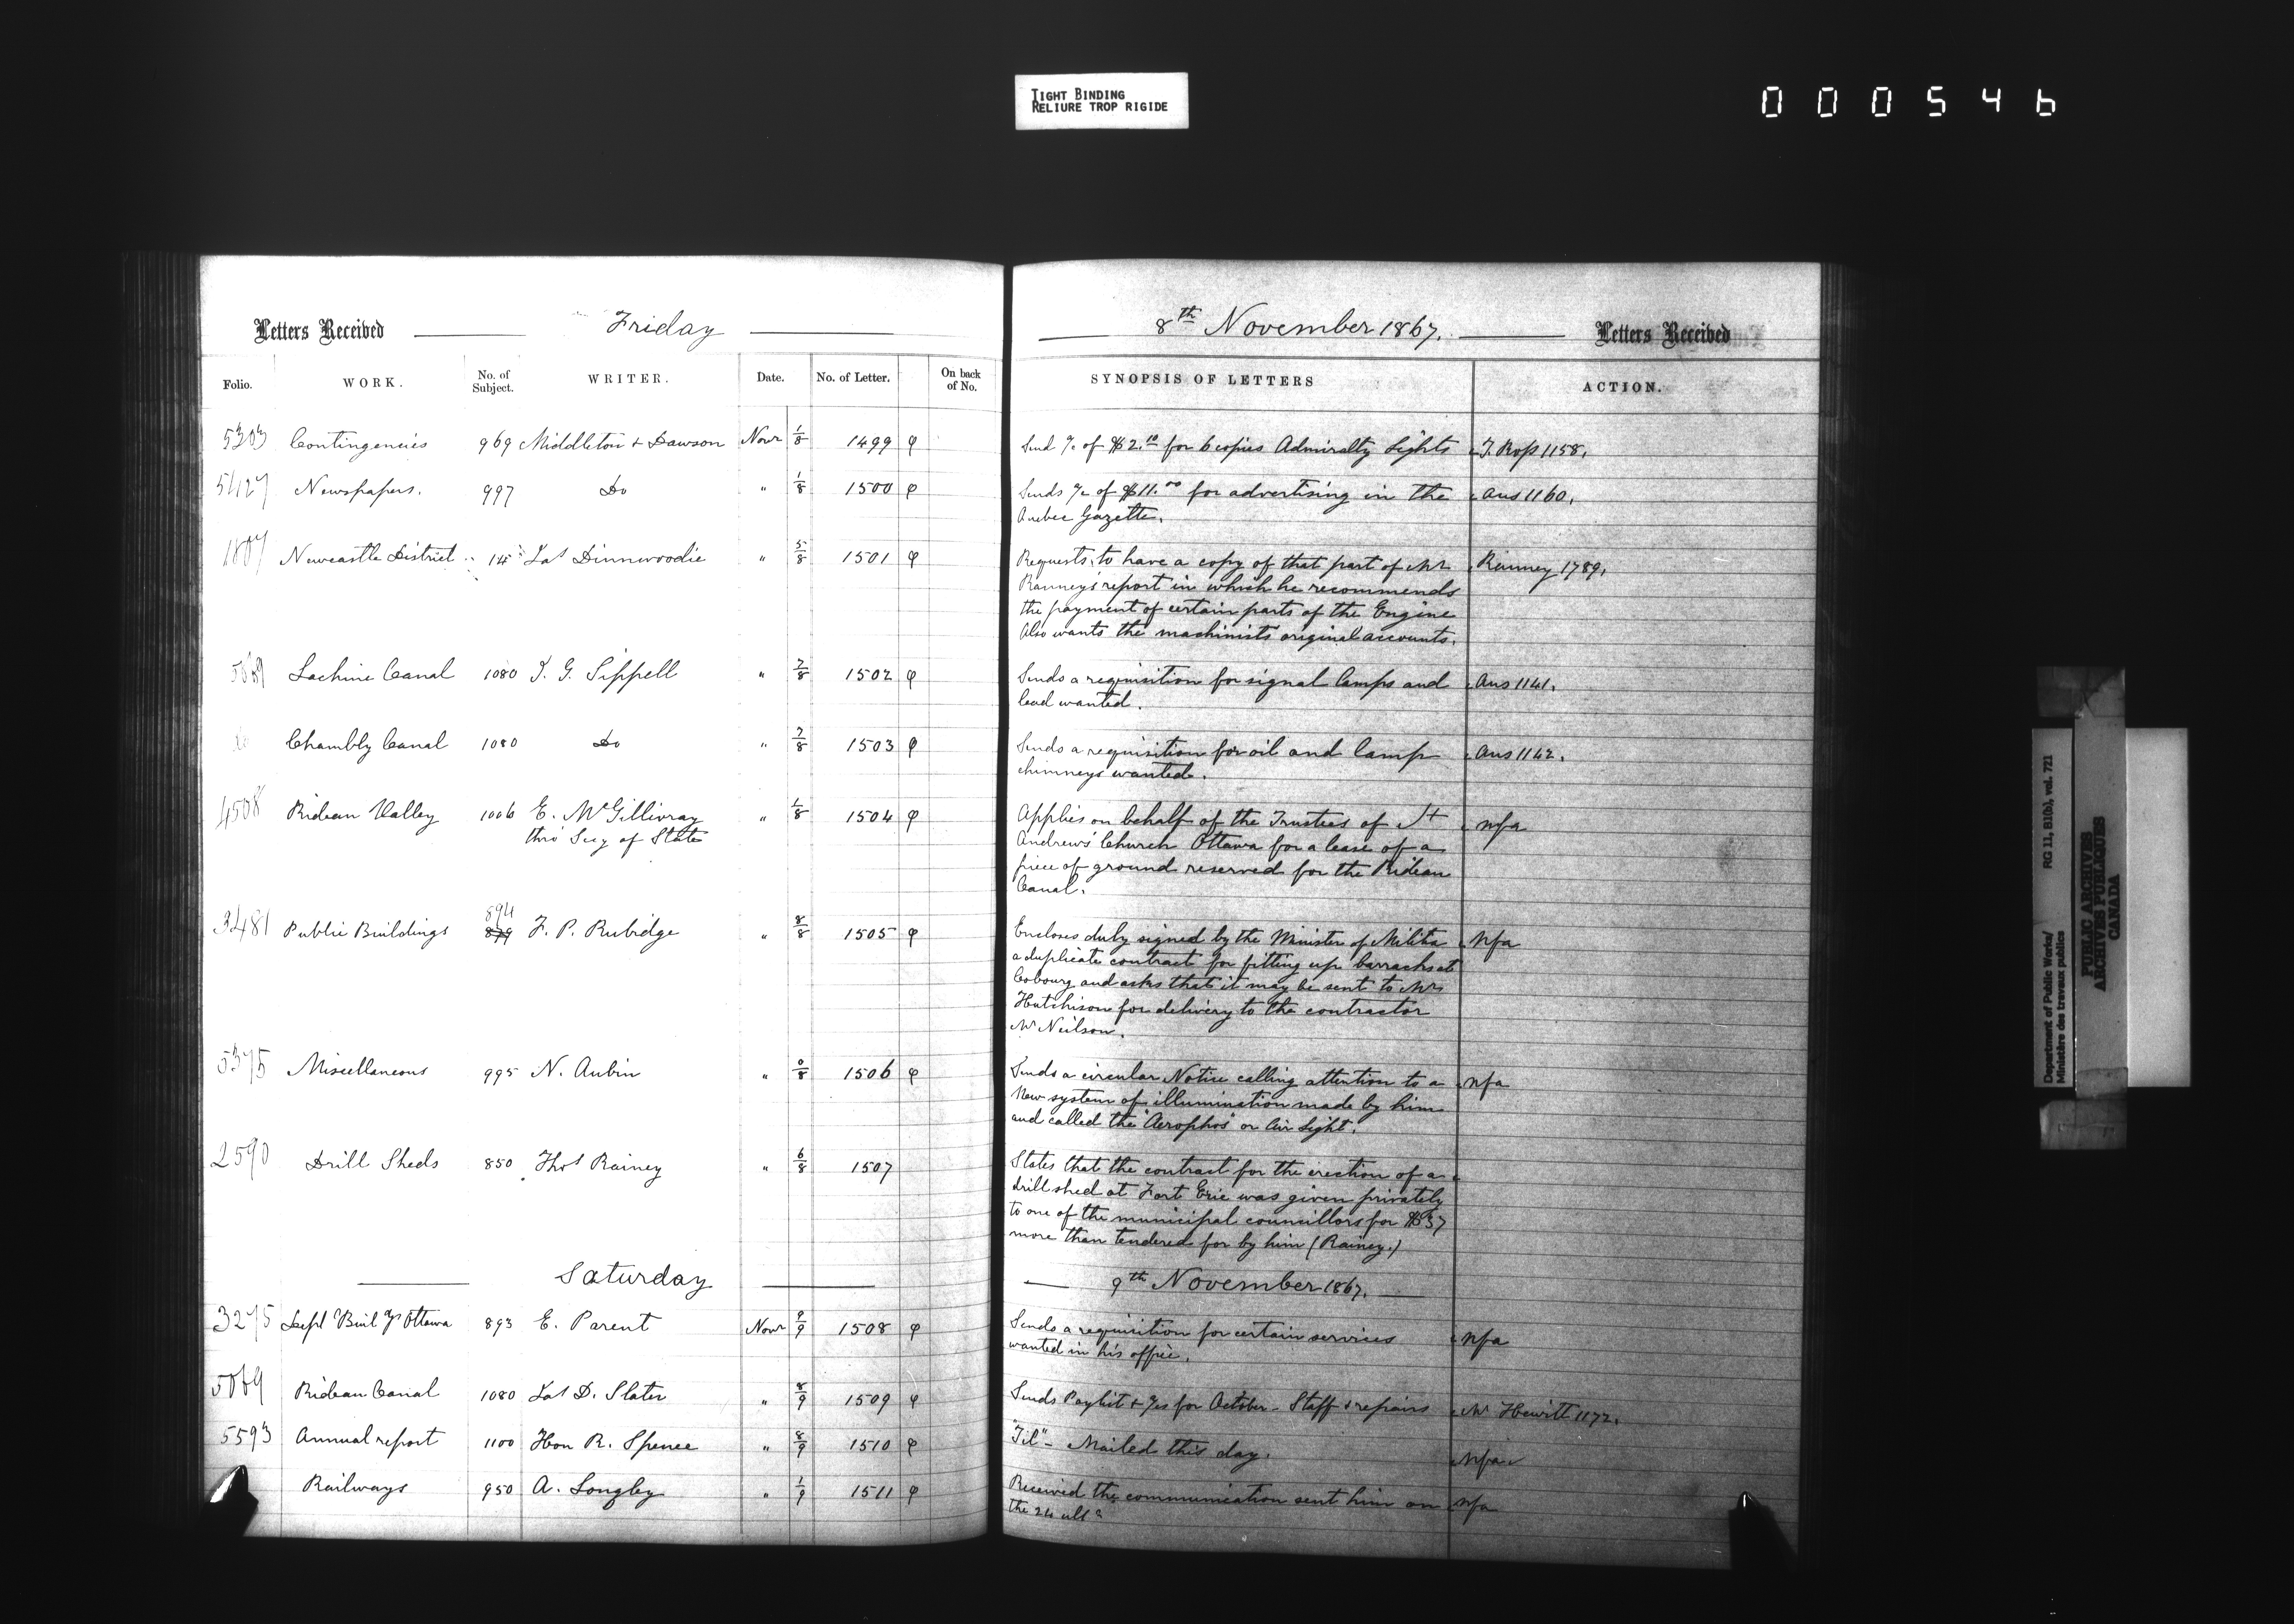 TIGHT BINDING
RELIURE TROP RIGIDE
000546
Letters Received Friday 8th November 1867. Letters Received
Folio. WORK. No. of Subject. WRITER. Date. No. of Letter. On back of No. SYNOPSIS OF LETTERS ACTION.
5303 Contingencies 969 Middleton & Dawson Novr 1/8 1499 φ Send a/c of $2.10 for 6 copies Admiralty Lights
Newspapers. 997 Do " 1/8 1500 φ Sends a/c of $11.00 for advertising in the Ans 1160.
Quebec Gazette.
1807 Newcastle District 14 Jas Dinnwoodie " 5/8 1501 φ Requests to have a copy of that part of Mr Ranney 1789.
Ranney's report in which he recommends
the payment of certain parts of the Engine
Also wants the machinists original accounts.
Lachine Canal 1080 J. G. Sippell " 7/8 1502 φ Sends a requisition for signal lamps and Ans 1141.
lead wanted.
Chambly Canal 1080 Do " 7/8 1503 φ Sends a requisition for oil and lamp Ans 1142.
chimneys wanted.
4508 Rideau Valley 1006 E. McGillivray " 1504 φ Applies on behalf of the Trustees of St nfa
thro' Secy of State Andrew's Church Ottawa for a lease of a
piece of ground reserved for the Rideau
Canal.
894
3481 Public Buildings 879 F. P. Rubidge " 8/8 1505 φ Encloses duly signed by the Minister of Militia nfa
a duplicate contract for fitting up barracks at
Cobourg and asks that it may be sent to Mr
Hutchison for delivery to the contractor
Mr Neilson.
5375 Miscellaneous 995 N. Aubin " 0/8 1506 φ Sends a circular Notice calling attention to a nfa
New system of illumination made by him
and called the "Aerophos" or Air Light.
2590 Drill Sheds 850 Thos Rainey " 6/8 1507 States that the contract for the erection of a
drill shed at Fort Erie was given privately
to one of the municipal councillors for $37
more than tendered for by him (Rainey.)
Saturday 9th November 1867.
3275 Dept Buil gs Ottawa 893 E. Parent Novr 9/9 1508 φ Sends a requisition for certain services nfa
wanted in his office.
5069 Rideau Canal 1080 Jas D. Slater " 8/9 1509 φ Sends Paylist & a/cs for October - Staff & repairs Mr Hewitt 1172.
5593 Annual report 1100 Hon R. Spence " 8/9 1510 φ "Tel" - Mailed this day. nfa
Railways 950 A. Longley " 1/9 1511 φ Received the communication sent him on nfa
the 24 ulto
Department of Public Works/
Ministère des travaux publics
RG 11, B1(b), vol. 721
PUBLIC ARCHIVES
ARCHIVES PUBLIQUES
CANADA